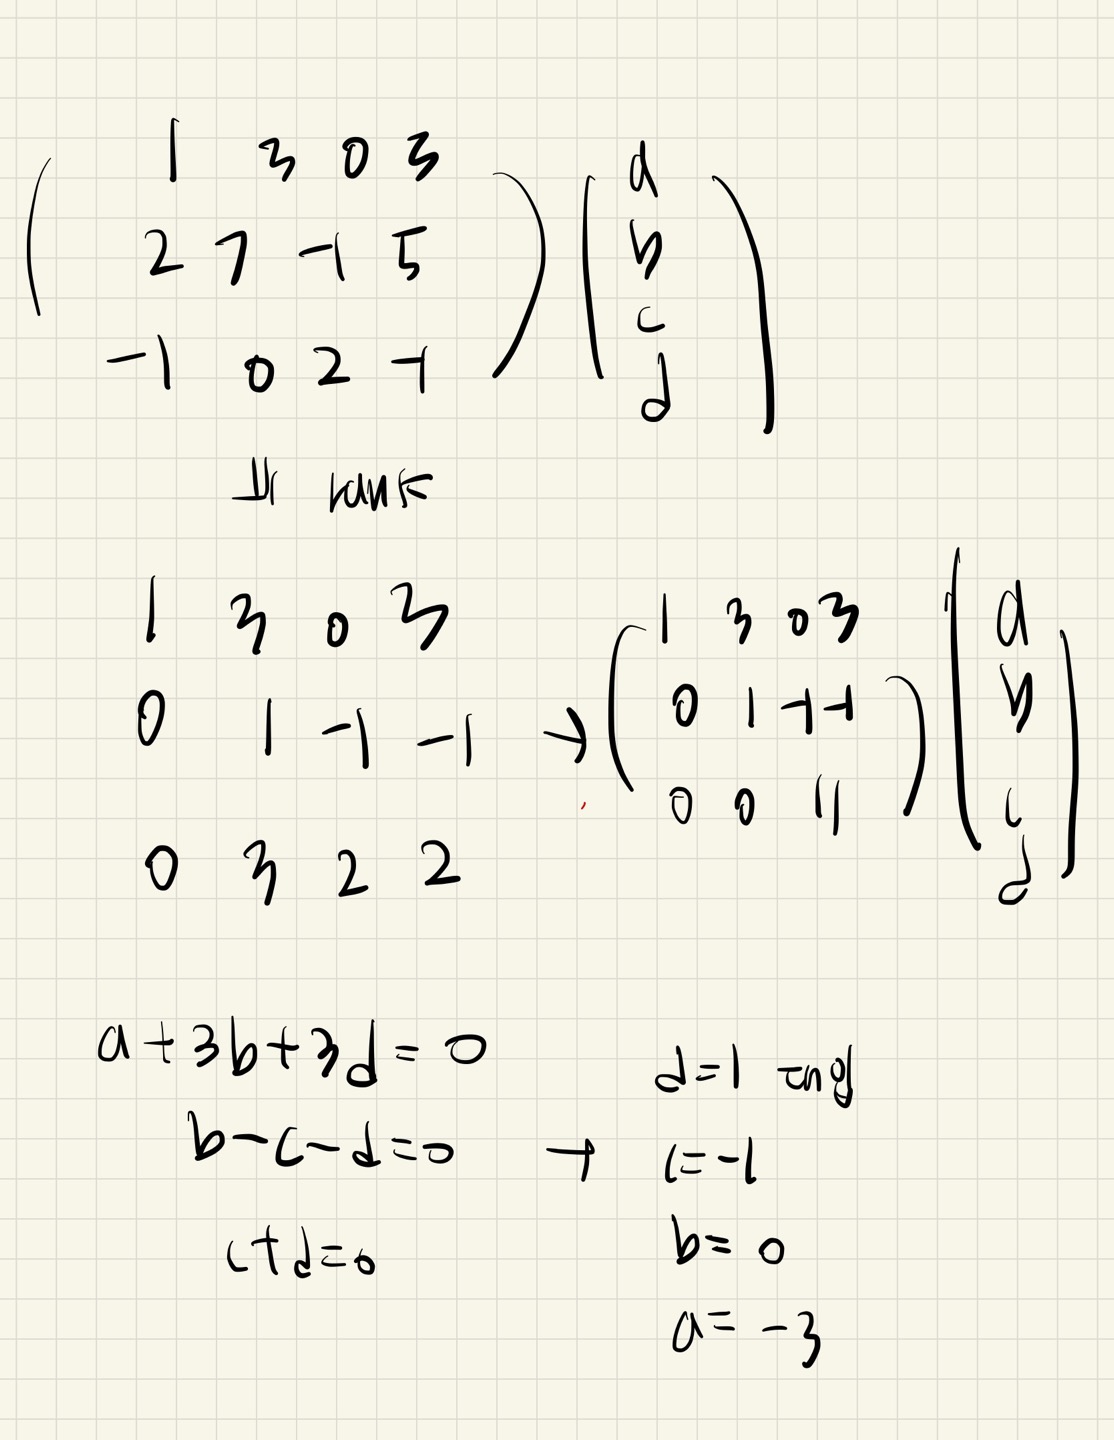 1 3 0 3 a
2 7 -1 5 b
-1 0 2 -1 c
d
rank
1 3 0 3
0 1 -1 -1
0 3 2 2
→
1 3 0 3 a
0 1 -1 -1 b
0 0 1 1 c
d
a+3b+3d=0
b-c-d=0
c+d=0
→
d=1
c=-1
b=0
a=-3